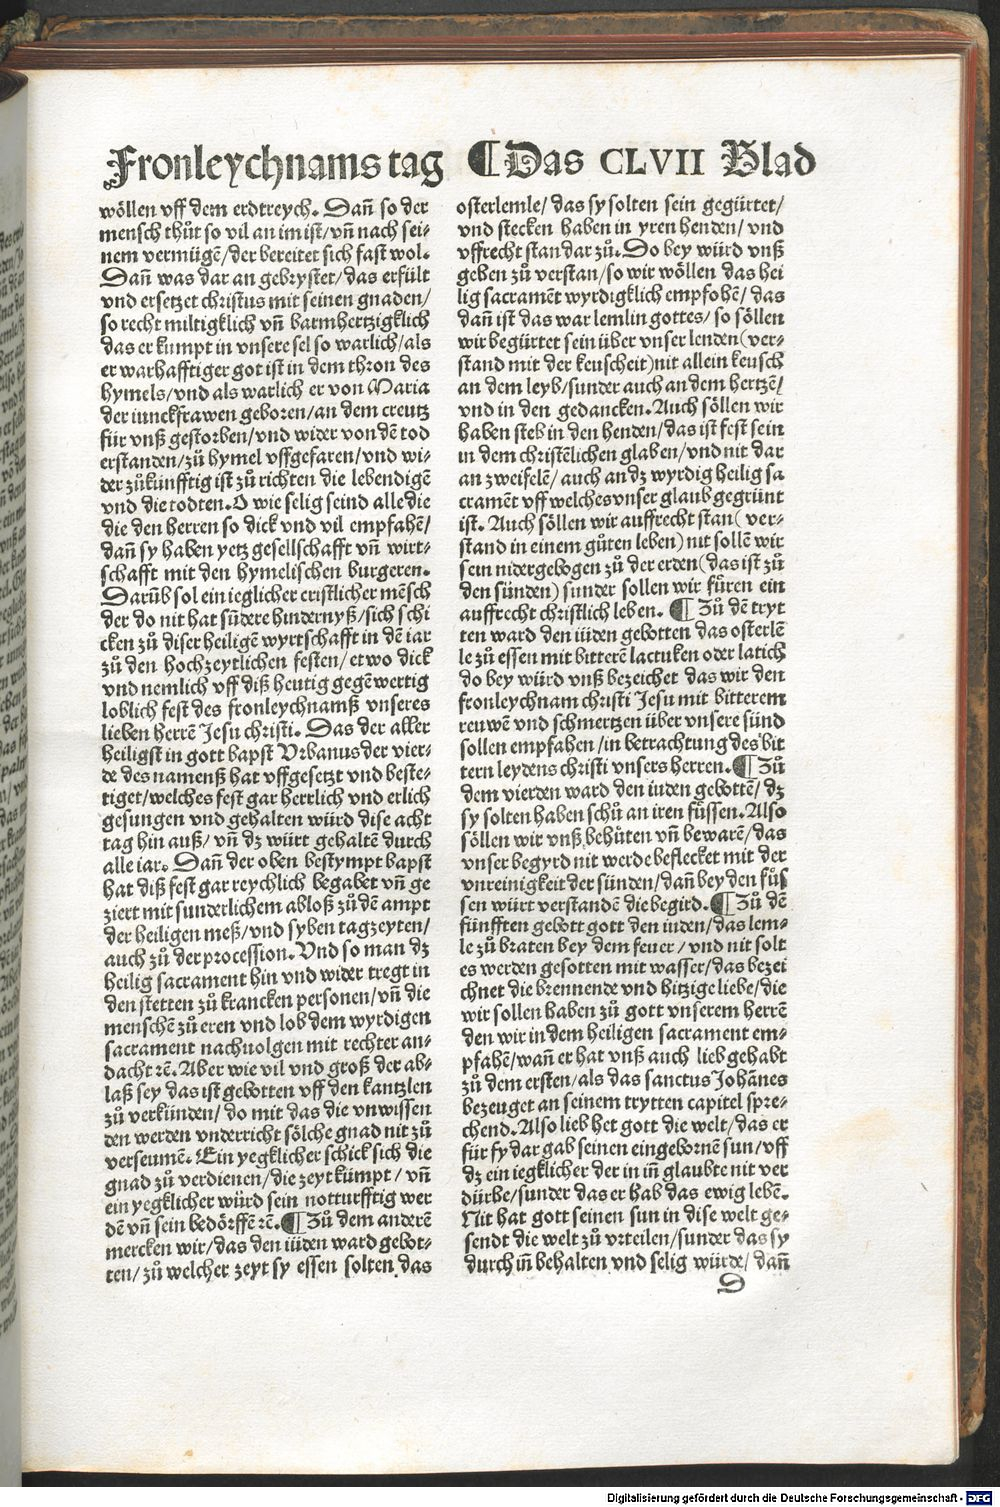 Fronleychnams tag ¶Das CLVII Blad
wöllen vff dem erdtreych. Dañ so der
mensch thůt so vil an im ist/vñ nach sei-
nem vermügen/der bereitet sich fast wol.
Dañ was dar an gebrystet/das erfült
vnd ersetzet christus mit seinen gnaden/
so recht miltigklich vñ barmhertzigklich
das er kumpt in vnsere sel so warlich/als
er warhafftiger got ist in dem thron des
hymels/vnd als warlich er von Maria
der iunckfrawen geboren/an dem creutz
für vnß gestorben/vnd wider von dē tod
erstanden/zů hymel vffgefaren/vnd wi-
der zůkünfftig ist zů richten die lebendigē
vnd die todten. O wie selig seind alle die
die den herren so dick vnd vil empfahē/
dañ sy haben yetz gesellschafft vñ wirt-
schafft mit den hymelischen burgeren.
Darūb sol ein ieglicher cristlicher mēsch
der do nit hat sūdere hindernyß/sich schi
cken zů diser heiligē wyrtschafft in dē iar
zů den hochzeytlichen festen/etwo dick
vnd nemlich vff diß heutig gegēwertig
loblich fest des fronleychnamß vnseres
lieben herrē Jesu christi. Das der aller
heiligst in gott bapst Vrbanus der vier-
de des namenß hat vffgesetzt vnd beste-
tiget/welches fest gar herrlich vnd erlich
gesungen vnd gehalten würd dise acht
tag hin auß/vñ dz würt gehaltē durch
alle iar. Dañ der oben bestympt bapst
hat diß fest gar reychlich begabet vñ ge
ziert mit sunderlichem abloß zů dē ampt
der heiligen meß/vnd syben tagzeyten/
auch zů der procession. Vnd so man dz
heilig sacrament hin vnd wider tregt in
den stetten zů krancken personen/vñ die
menschē zů eren vnd lob dem wyrdigen
sacrament nachuolgen mit rechter an-
dacht ꝛc̄. Aber wie vil vnd groß der ab-
laß sey das ist gebotten vff den kantzlen
zů verkünden/do mit das die vnwissen
den werden vnderricht sölche gnad nit zů
verseumē. Ein yegklicher schick sich die
gnad zů verdienen/die zeyt kümpt/vñ
ein yegklicher würd sein notturfftig wer
dē vñ sein bedörffē ꝛc̄. ¶Zů dem anderē
mercken wir/das den iüden ward gebot-
ten/zů welcher zeyt sy essen solten das
osterlemle/das sy solten sein gegürtet/
vnd stecken haben in yren henden/vnd
vffrecht stan dar zů. Do bey würd vnß
geben zů verstan/so wir wöllen das hei
lig sacramēt wyrdigklich empfohē/das
dañ ist das war lemlin gottes/so söllen
wir begürtet sein über vnser lenden(ver-
stand mit der keuscheit)nit allein keusch
an dem leyb/sunder auch an dem hertzē/
vnd in den gedancken. Auch söllen wir
haben steb in den henden/das ist fest sein
in dem christēlichen glaben/vnd nit dar
an zweifelē/auch an dz wyrdig heilig sa
cramēt vff welches vnser glaub gegrünt
ist. Auch söllen wir auffrecht stan(ver-
stand in einem gůten leben)nit sollē wir
sein nidergebogen zů der erden(das ist zů
den sünden)sunder sollen wir fůren ein
auffrecht christlich leben. ¶Zů dē tryt
ten ward den iüden gebotten das osterlē
le zů essen mit bitterē lactuken oder latich
do bey würd vnß bezeichet das wir den
fronleychnam christi Jesu mit bitterem
reuwē vnd schmertzen über vnsere sünd
sollen empfahen/in betrachtung des bit
tern leydens christi vnsers herren. ¶Zů
dem vierden ward den iuden gebottē/dz
sy solten haben schů an iren füssen. Also
söllen wir vnß behüten vñ bewarē/das
vnser begyrd nit werde beflecket mit der
vnreinigkeit der sünden/dañ bey den füs
sen würt verstandē die begird. ¶Zů dē
fünfften gebott gott den iuden/das lem-
le zů braten bey dem feuer/vnd nit solt
es werden gesotten mit wasser/das bezei
chnet die brennende vnd hitzige liebe/die
wir sollen haben zů gott vnserem herrē
den wir in dem heiligen sacrament em-
pfahē/wañ er hat vnß auch lieb gehabt
zů dem ersten/als das sanctus Johānes
bezeuget an seinem trytten capitel spre-
chend. Also lieb het gott die welt/das er
für sy dar gab seinen eingebornē sun/vff
dz ein iegklicher der in iñ glaubte nit ver
dürbe/sunder das er hab das ewig lebē.
Nit hat gott seinen sun in dise welt ge-
sendt die welt zů vrteilen/sunder das sy
durch iñ behalten vnd selig würde/dañ
D
Digitalisierung gefördert durch die Deutsche Forschungsgemeinschaft - DFG